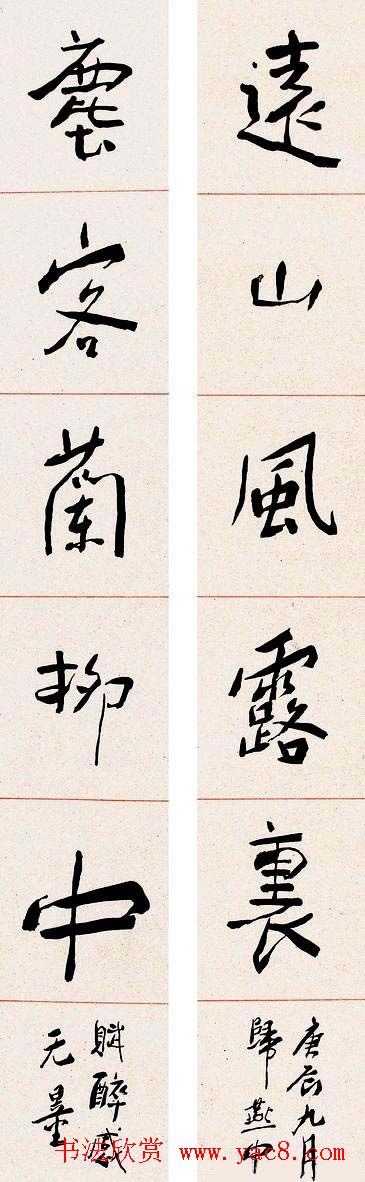 遠山風露裏
庚辰九月
歸燕中
塵客蘭柳中
賦醉感
无量
书法欣赏 www.yac8.com